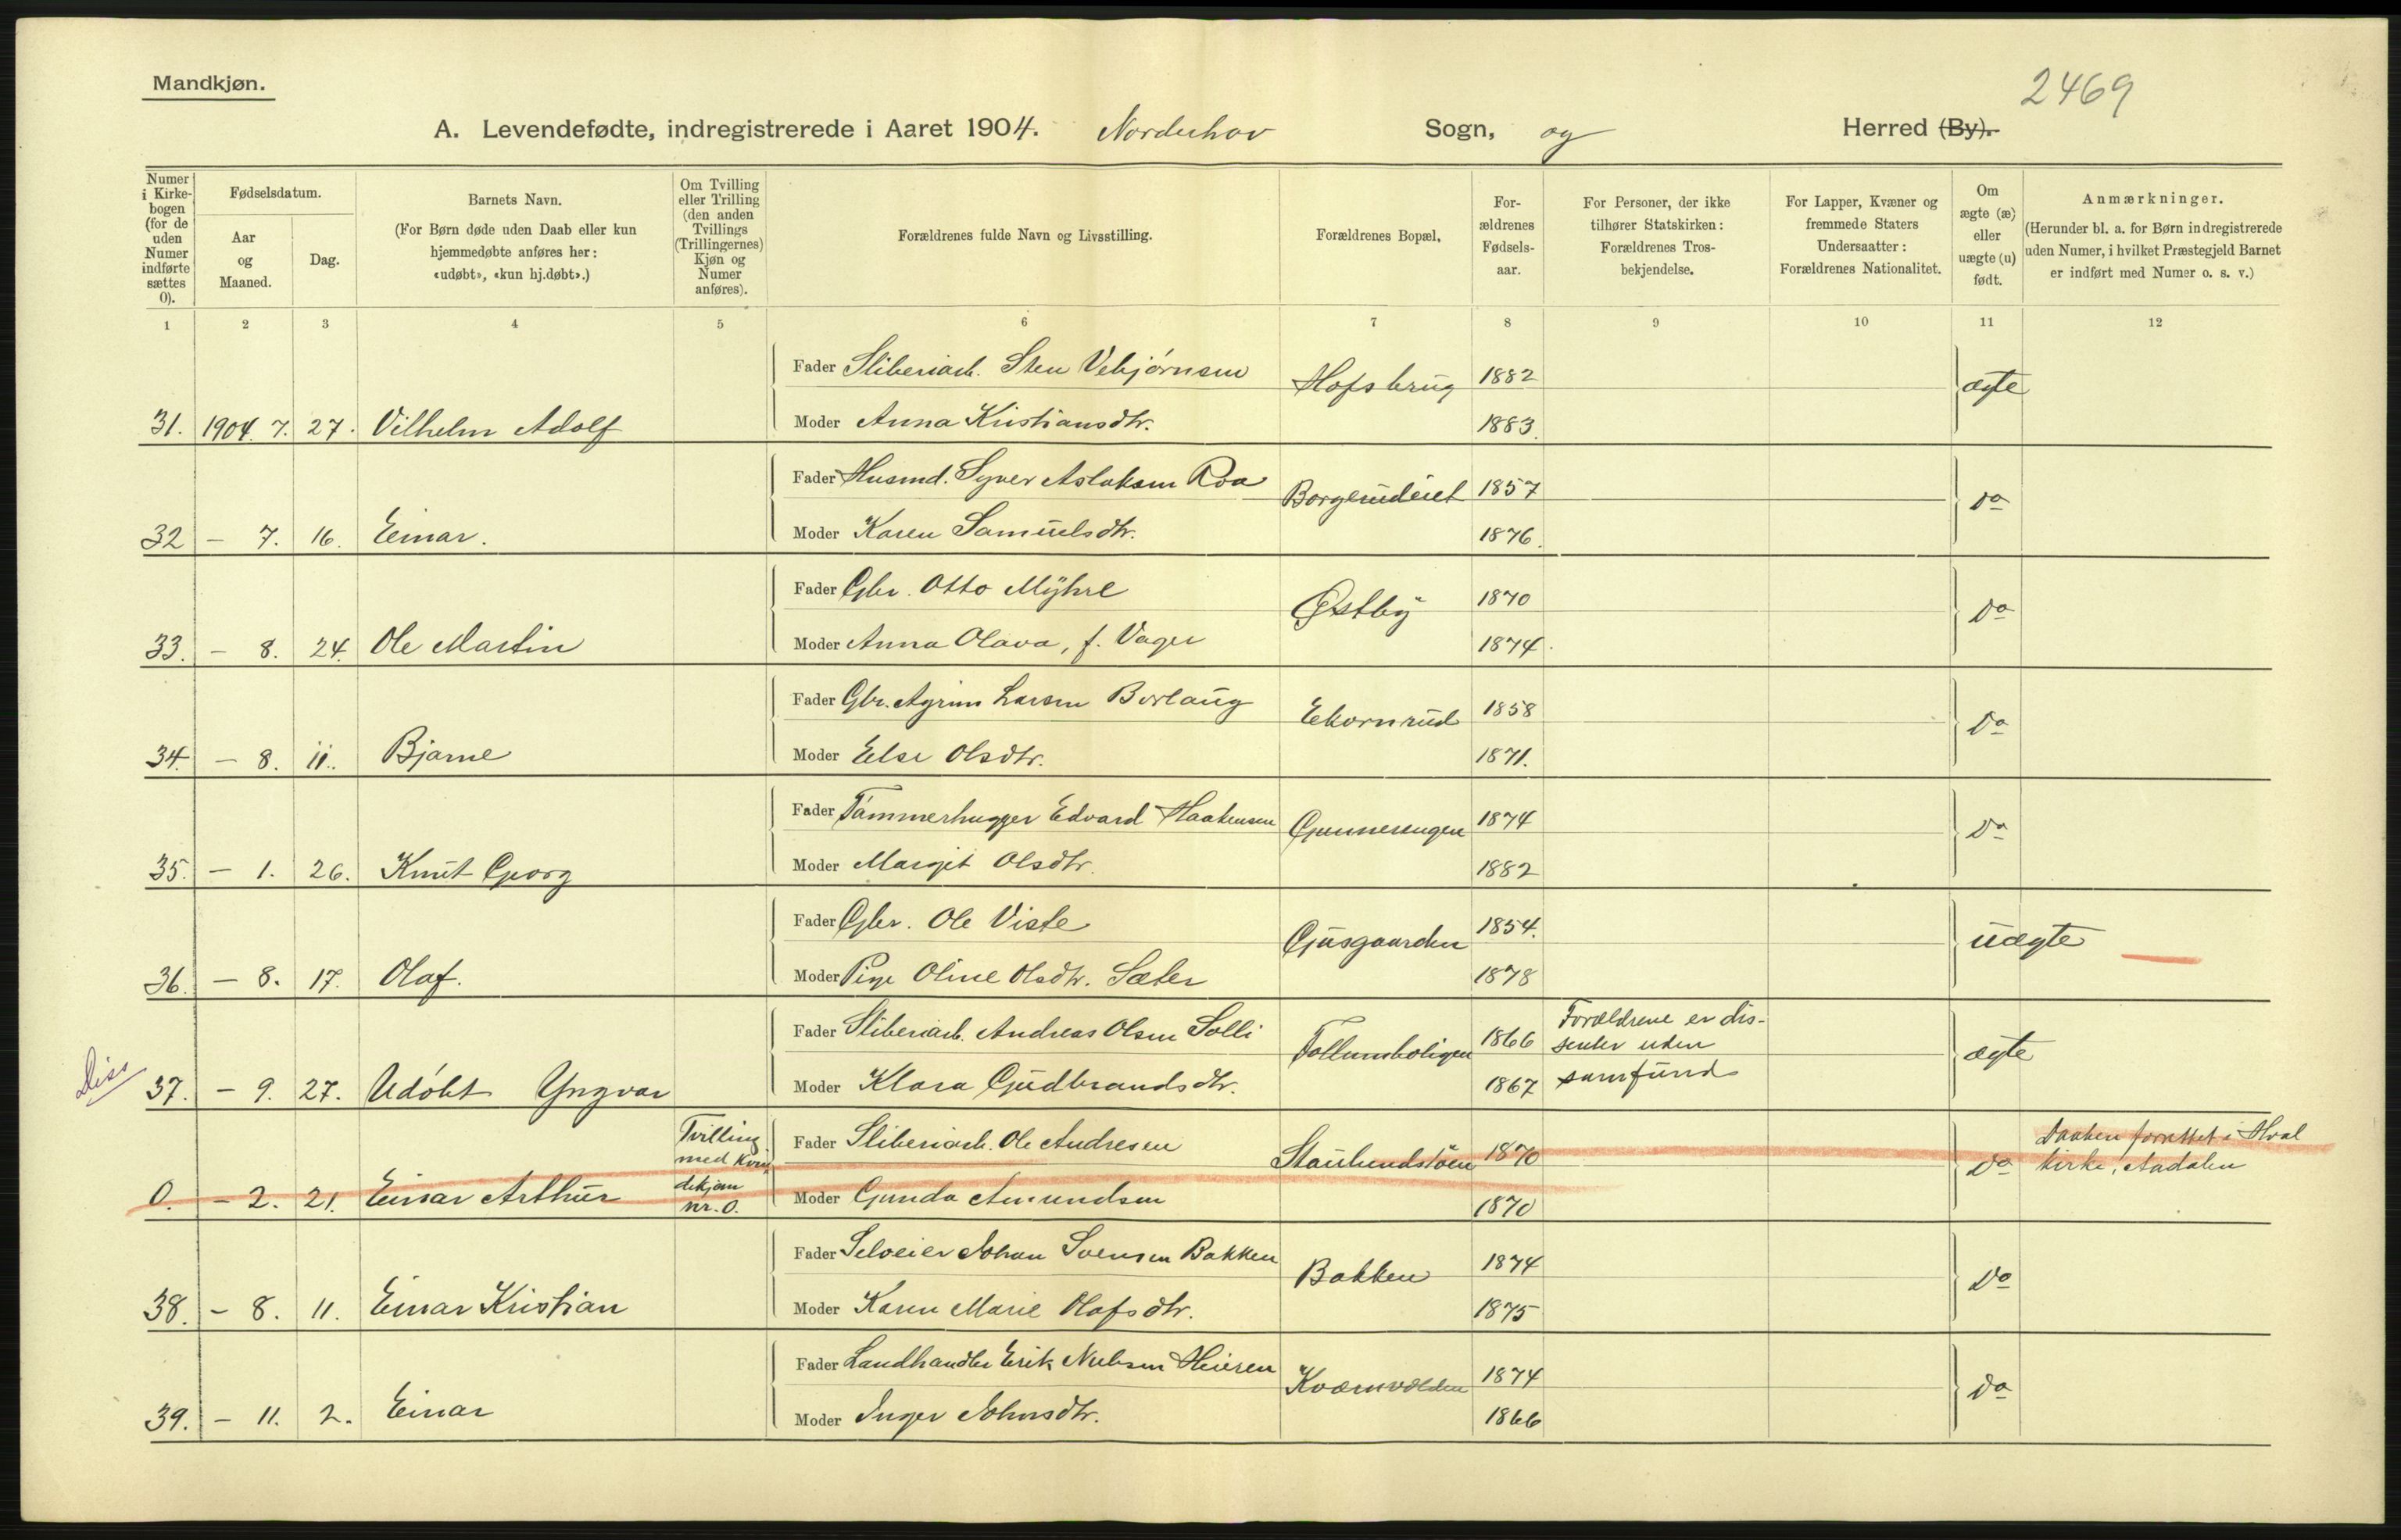 Mandkjøn.
2469
A. Levendefødte, indregistrerede i Aaret 1904. Norderhov Sogn, og Herred (By).
Numer i Kirkebogen (for de uden Numer indførte sættes 0).
Fødselsdatum.
Aar og Maaned.
Dag.
Barnets Navn.
(For Børn døde uden Daab eller kun hjemmedøbte anføres her: «udøbt», «kun hj.døbt».)
Om Tvilling eller Trilling (den anden Tvillings (Trillingernes) Kjøn og Numer anføres).
Forældrenes fulde Navn og Livsstilling.
Forældrenes Bopæl.
Forældrenes Fødselsaar.
For Personer, der ikke tilhører Statskirken: Forældrenes Trosbekjendelse.
For Lapper, Kvæner og fremmede Staters Undersaatter: Forældrenes Nationalitet.
Om ægte (æ) eller uægte (u) født.
Anmærkninger.
(Herunder bl. a. for Børn indregistrerede uden Numer, i hvilket Præstegjeld Barnet er indført med Numer o. s. v.)
1 2 3 4 5 6 7 8 9 10 11 12
Fader Sliberiarb. Sten Vebjørnsen Hofsbrug 1882 ægte
31. 1904. 7. 27. Vilhelm Adolf Moder Anna Kristiansdtr. 1883.
Fader Husmd. Syver Aslaksen Roa Borgerudeiet 1857 Do
32 - 7. 16. Einar. Moder Karen Samuelsdtr. 1876.
Fader Gbr. Otto Myhre Østby 1870 Do
33. - 8. 24. Ole Martin Moder Anna Olava, f. Vager 1874.
Fader Gbr. Agrim Larsen Borlaug Ekornrud 1858 Do
34. - 8. 11. Bjarne Moder Else Olsdtr. 1871.
Fader Tømmerhugger Edvard Haakensen Gunnersengen 1874 Do
35. - 1. 26. Knut Georg Moder Margit Olsdtr. 1882
Fader Gbr. Ole Viste Gjusgaarden 1854. uægte
36. - 8. 17. Olaf. Moder Pige Oline Olsdtr. Sæter 1878
Fader Sliberiarb. Andreas Olsen Solli Follumboligen 1866 Forældrene er dissenter uden samfund ægte
Diss 37. - 9. 27. Udøbt Yngvar Moder Klara Gudbrandsdtr. 1867
Tvilling med Kvindekjøn nr. 0. Fader Sliberiarb. Ole Andresen 1870 Do Daaben forrettet i Hval kirke, Aadalen
0. - 2. 21. Einar Arthur Moder Gunda Amundsen 1870
Fader Selveier Johan Svensen Bakken Bakken 1874 Do
38. - 8. 11. Einar Kristian Moder Karen Marie Olafsdtr. 1875
Fader Landhandler Erik Nielsen Heieren Kværnvolden 1874 Do
39. - 11. 2. Einar Moder Inger Johnsdtr. 1866